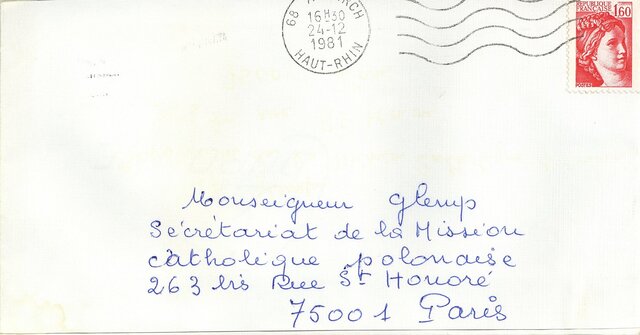 68 RCH
16H30
24-12
1981
HAUT-RHIN
FRANÇAISE
1,60
POSTES
Monseigneur Glemp
Sécrétariat de la Mission
catholique polonaise
263 bis Rue St Honoré
75001 Paris